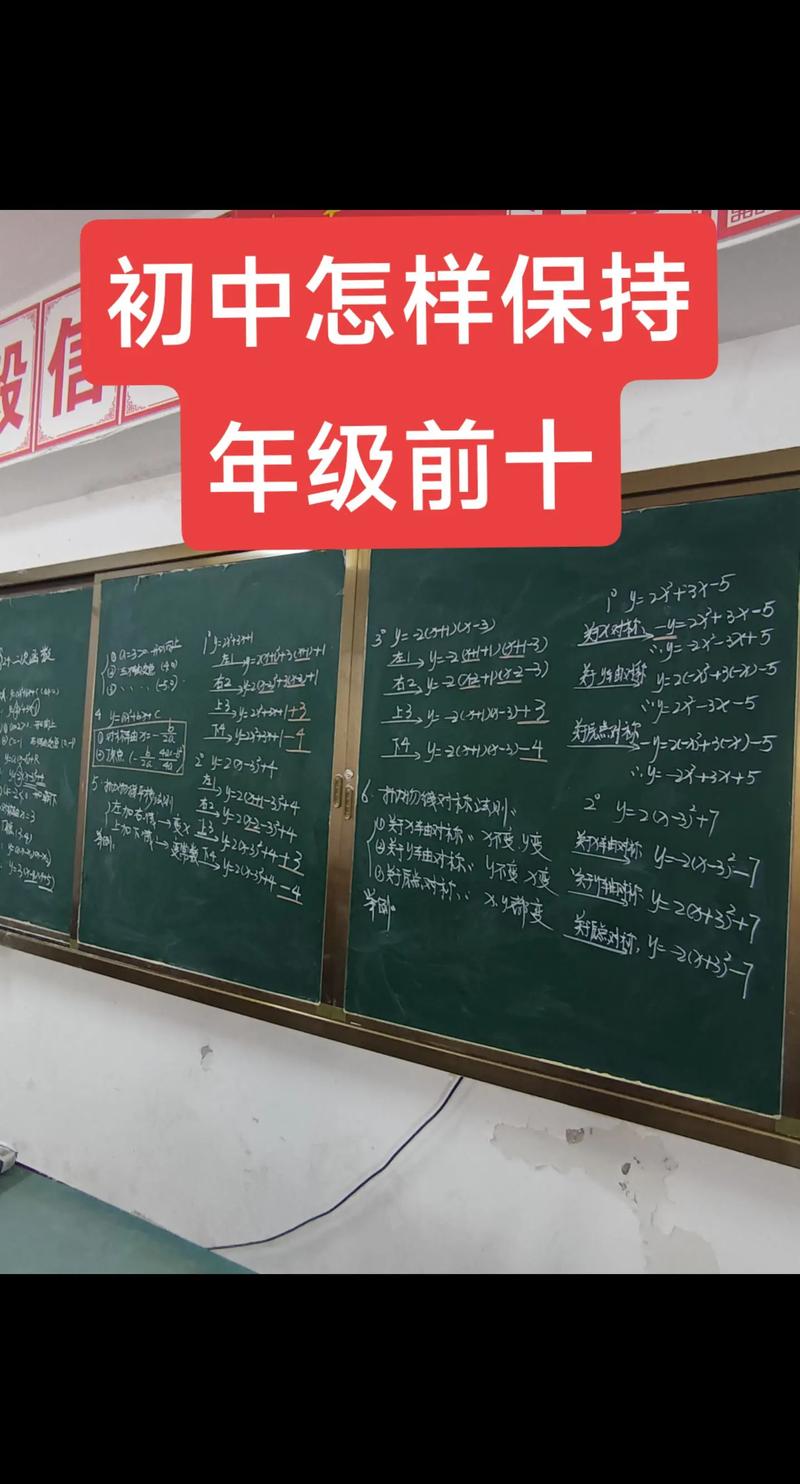 初中怎样保持
年级前十
毅信
二次函数
① a=3>
4. y=ax²+bx+c
① 对称轴 x=-b/2a
② 顶点(-b/2a, 4ac-b²/4a)
5. 抛物线平移法则
左加右减→变x
上加下减→变常数
举例:
1° y=2x²+3x+1
左1 y=2(x+1)²+3(x+1)+1
右2 y=2(x-2)²+3(x-2)+1
上3 y=2x²+3x+1+3
下4 y=2x²+3x+1-4
2° y=2(x-3)²+4
左1 y=2(x+1-3)²+4
右2 y=2(x-2-3)²+4
上3 y=2(x-3)²+4+3
下4 y=2(x-3)²+4-4
3° y=-2(x+1)(x-3)
左1 y=-2(x+1+1)(x+1-3)
右2 y=-2(x-2+1)(x-2-3)
上3 y=-2(x+1)(x-3)+3
下4 y=-2(x+1)(x-3)-4
6. 抛物线对称法则:
① 关于x轴对称:x不变 y变
② 关于y轴对称:y不变 x变
③ 关于原点对称:x、y都变
举例:
1° y=2x²+3x-5
关于x对称 -y=2x²+3x-5
∴y=-2x²-3x+5
关于y轴对称 y=2(-x)²+3(-x)-5
∴y=2x²-3x-5
关于原点对称 -y=2(-x)²+3(-x)-5
∴y=-2x²+3x+5
2° y=2(x-3)²+7
关于x轴对称 y=-2(x-3)²-7
关于y轴对称 y=2(x+3)²+7
关于原点对称 y=-2(x+3)²-7